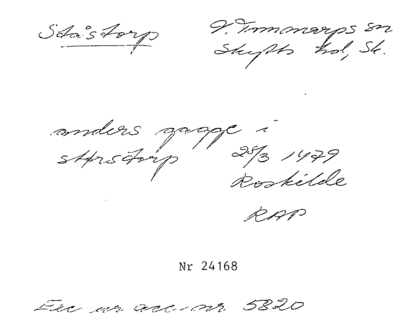 Ståstorp
V. Tommarps sn
Skytts hd, Sk.
anders gagge i
stfrstorp 28/3 1479
Roskilde
RAP
Nr 24168
Exc ur acc.nr. 5820